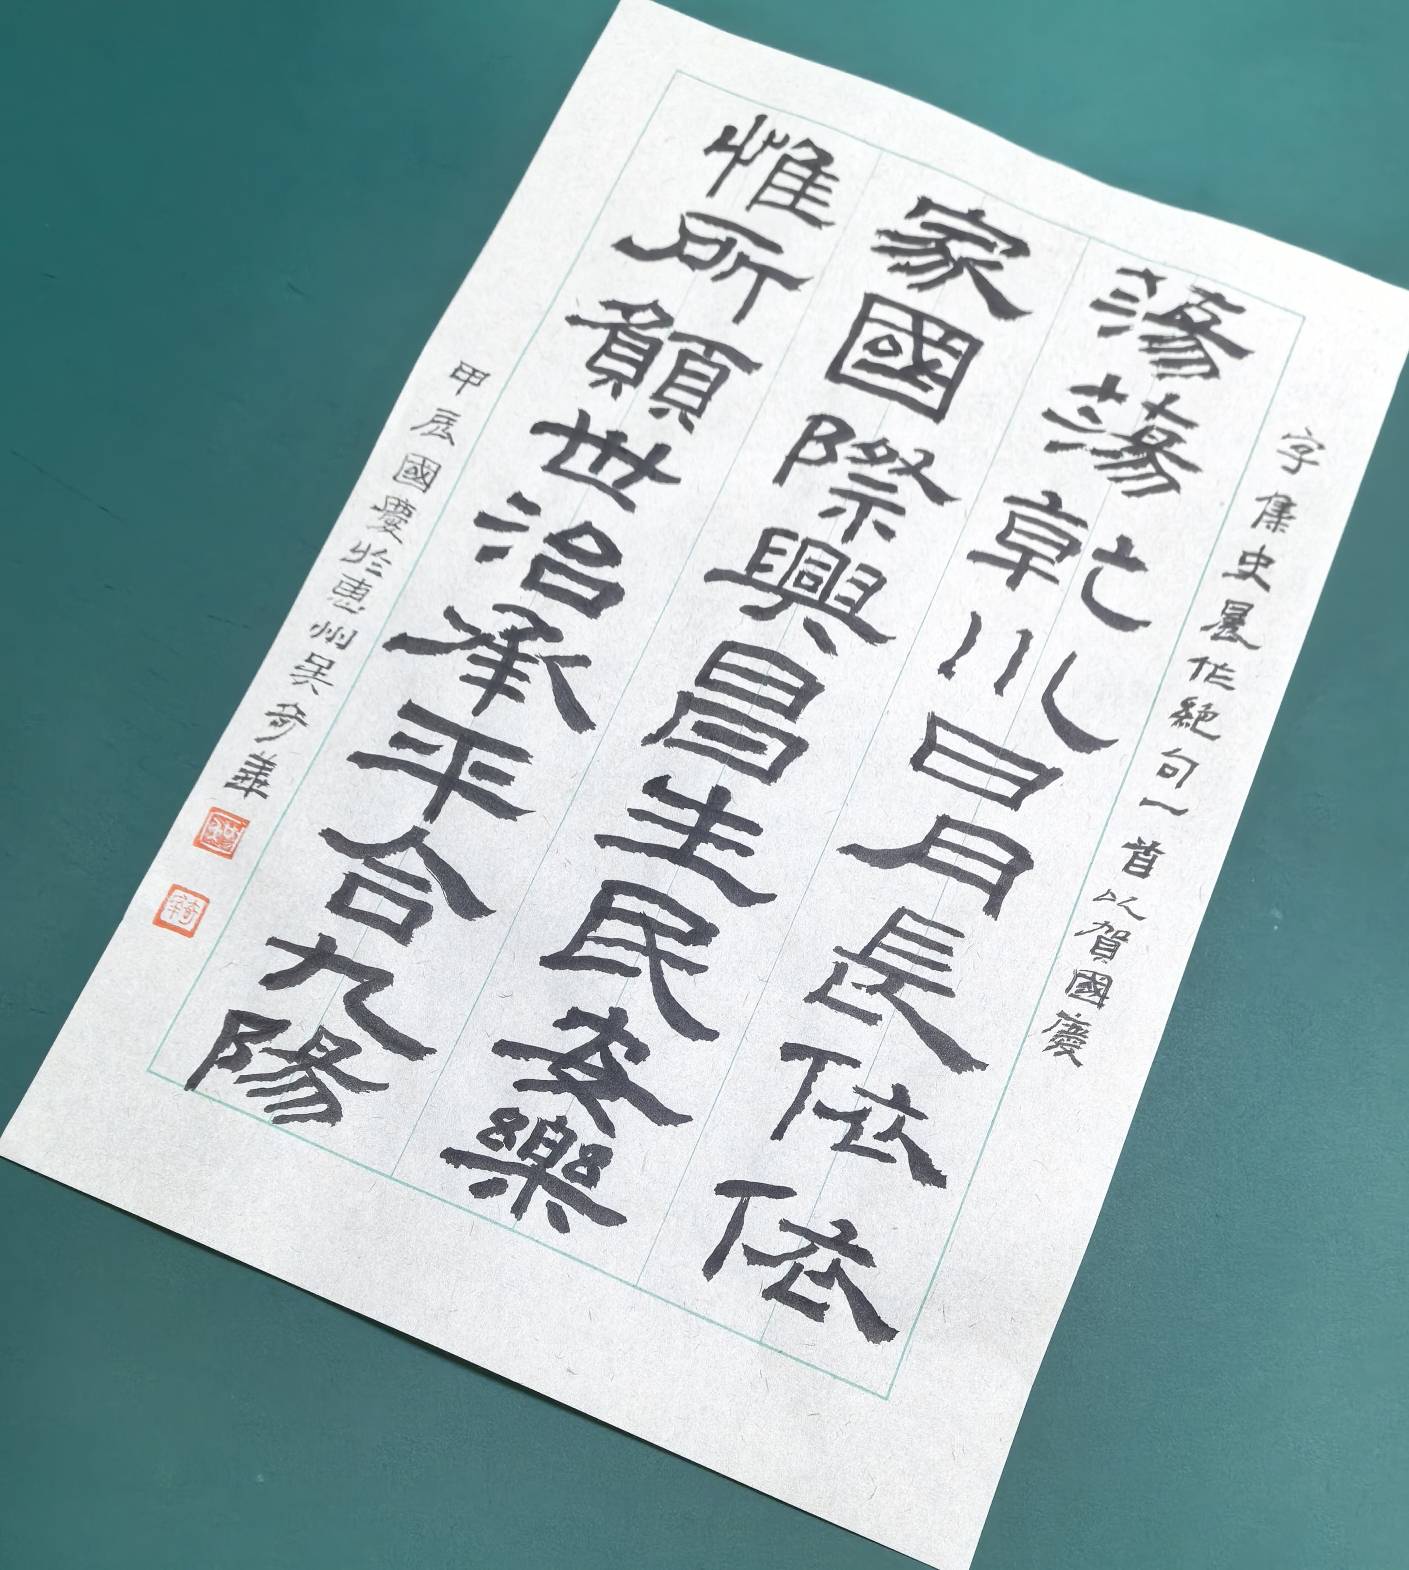 字集史晨作絕句一首以賀國慶
蕩蕩乾川日月長依依
家國際興昌生民安樂
惟所願世治承平合九陽
甲辰國慶於惠州吳奇華